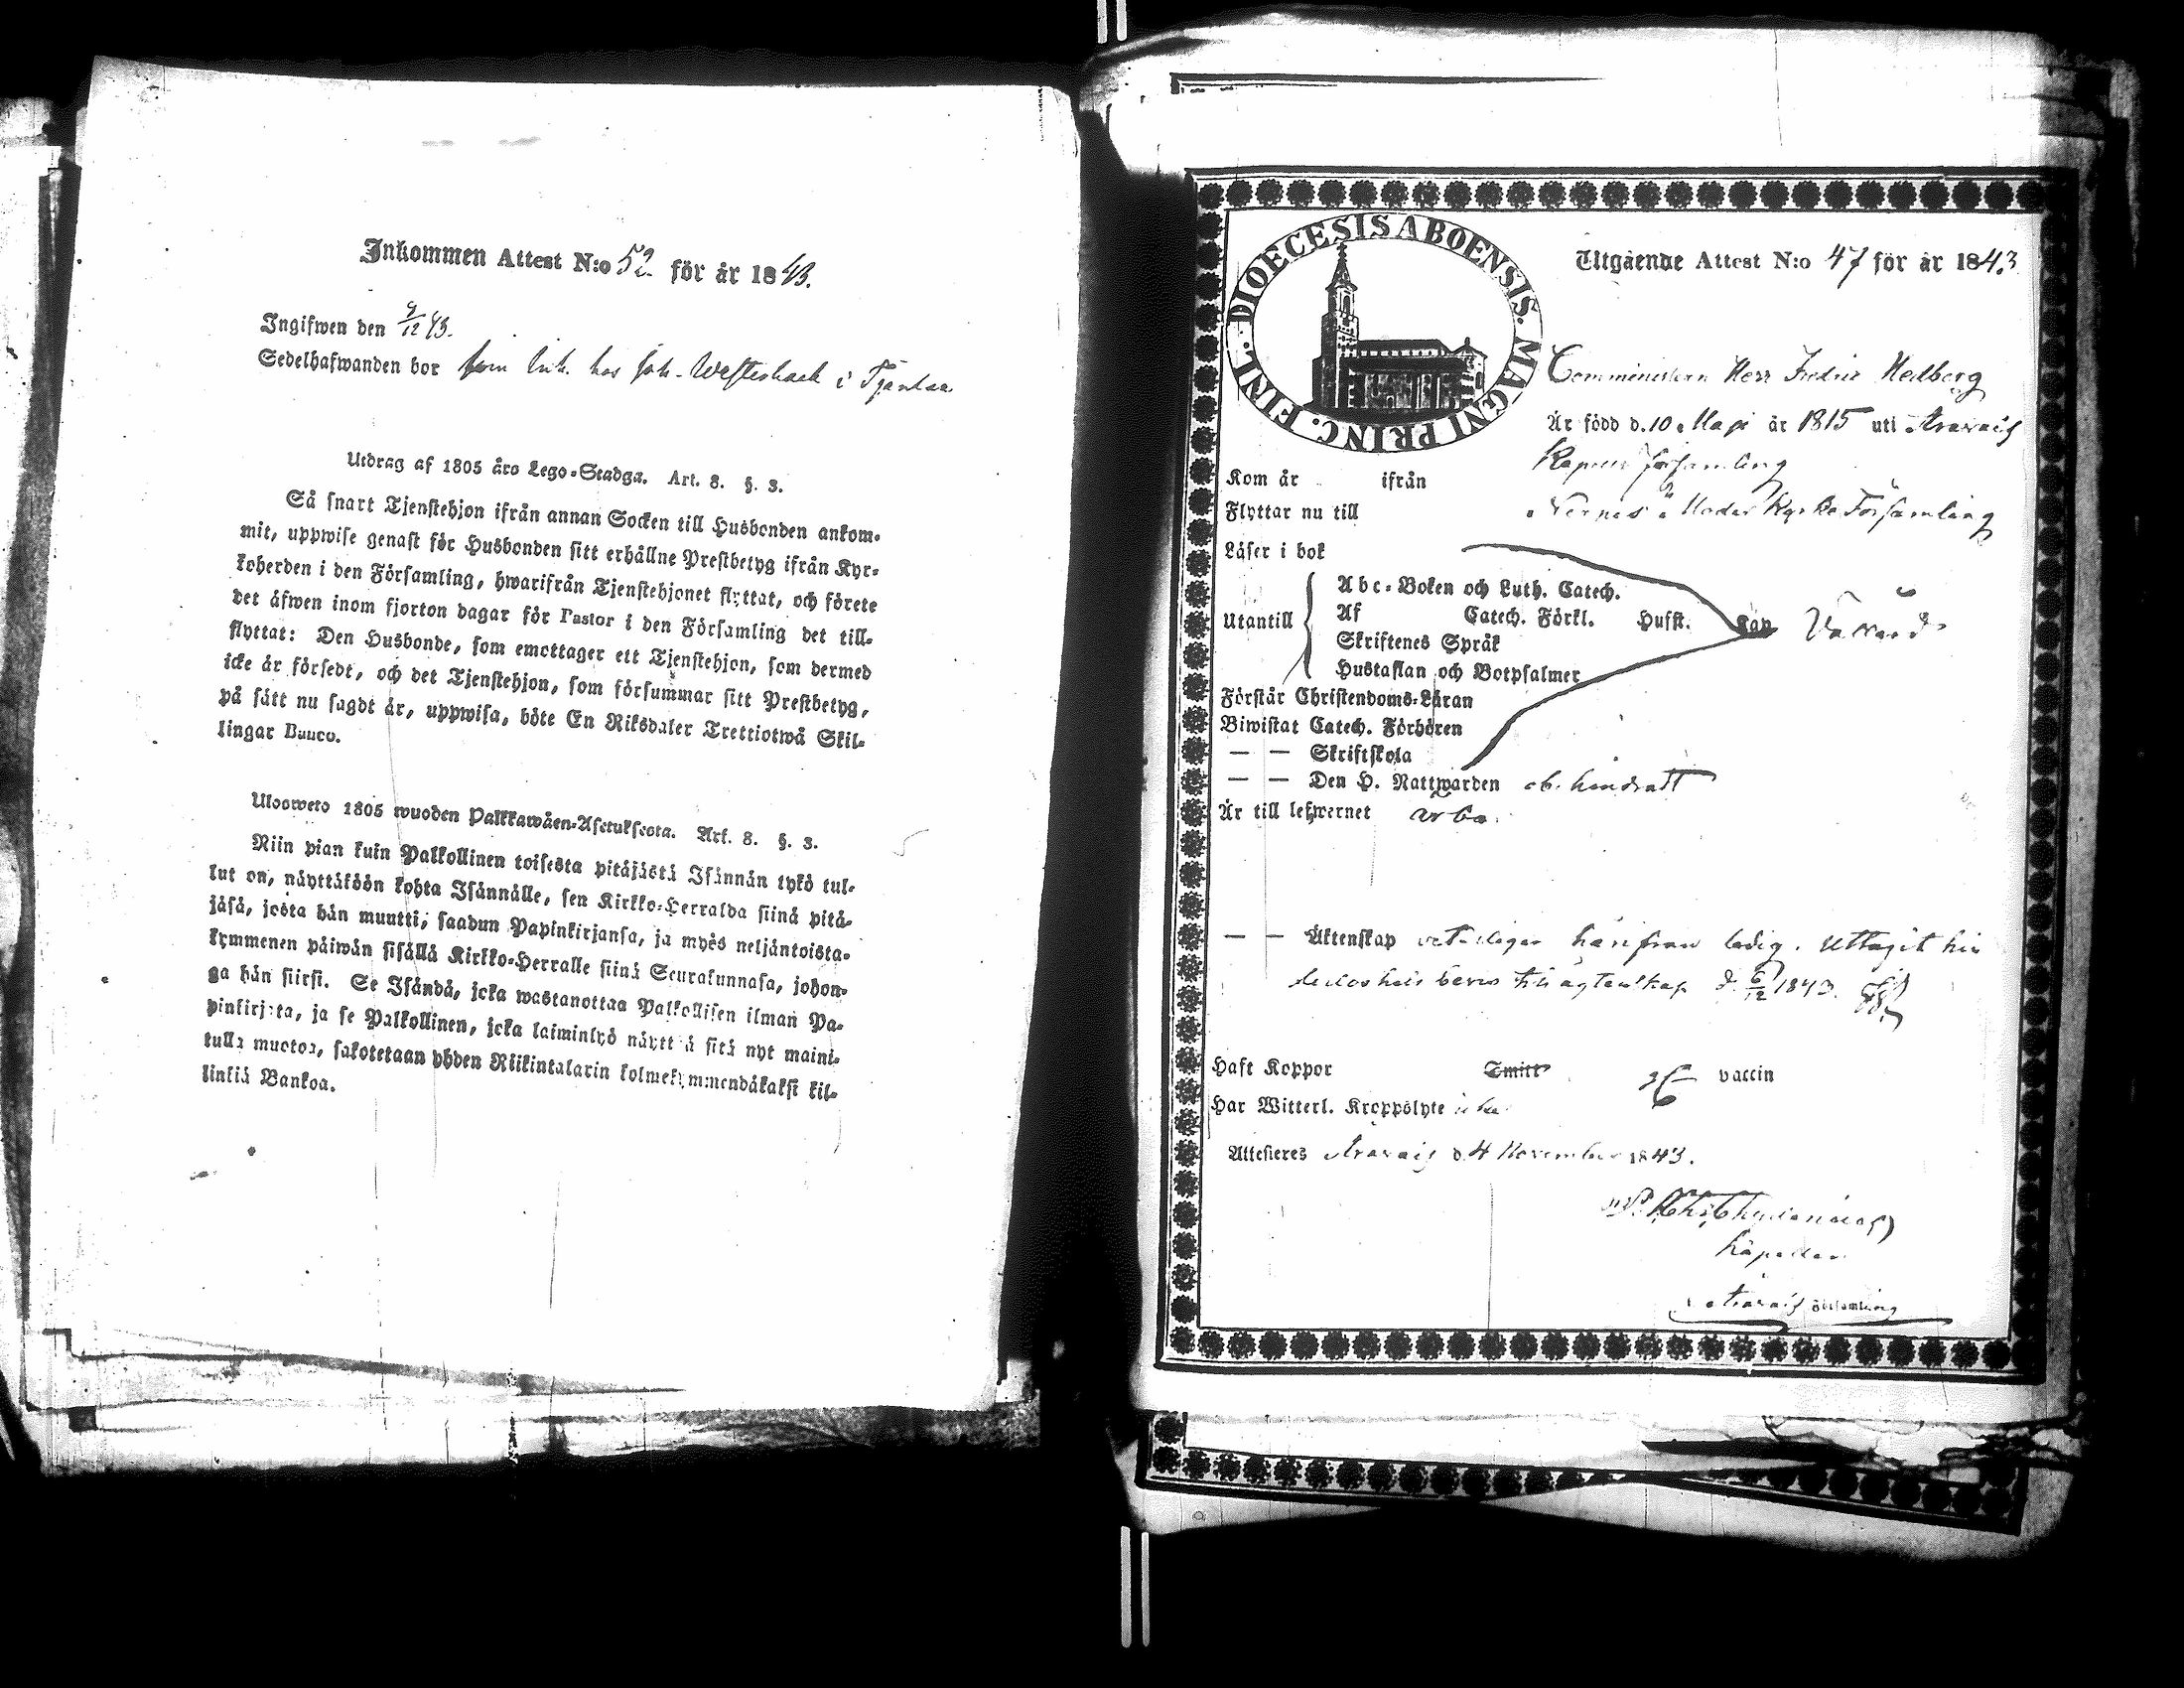 Inkommen Attest N:o 52 för år 1843.
Ingifwen den 9/12 43.
Sedelhafwanden bor som inh. hos Joh. Westerback i
Utdrag af 1805 åro Lego-Stadga. Art. 8. §. 3.
Så snart Tjenstehjon ifrån annan Socken till Husbonden ankom-
mit, uppwise genast för Husbonden sitt erhållne Prestbetyg ifrån Kyr-
koherden i den Församling, hwarifrån Tjenstehjonet flyttat, och förete
det äfwen inom fjorton dagar för Pastor i den Församling det till-
flyttat: Den Husbonde, som emottager ett Tjenstehjon, som dermed
icke är försedt, och det Tjenstehjon, som försummar sitt Prestbetyg,
på sätt nu sagdt är, uppwisa, böte En Riksdaler Trettiotwå Skil-
lingar Banco.
Uloowето 1805 wuoden Palkkawäen-Asetuksesta. Art. 8. §. 3.
Niin pian kuin Palkollinen toisesta pitäjästä Isännän tykö tul-
lut on, näyttäköön kohta Isännälle, sen Kirkko-Herralda siinä pitä-
jäsä, josta hän muutti, saadun Papinkirjansa, ja myös neljäntoista-
kymmenen päiwän sisällä Kirkko-Herralle siinä Seurakunnasa, johon-
ga hän siirsi. Se Isändä, joka wastanottaa Palkollisen ilman Pa-
pinkirjata, ja se Palkollinen, joka laiminlyö näyttää sitä nyt maini-
tulla muotoa, sakotetaan yhden Riikintalarin kolmekymmendäkaksi kil-
linkiä Bankoa.
DIOECESIS ABOENSIS. MAGNI PRINC. FINL.
Utgående Attest N:o 47 för år 1843
Herr Fredric Hedberg
Är född d. 10 Maji år 1815 uti
Kom år ifrån
Kapell församling
Flyttar nu till Moder Kyrko Församling
Läser i bok
Abc-Boken och Luth. Catech.
Utantill Af Catech. Förkl. Husft.
Skriftenes Språk
Hustaflan och Botpsalmer
Förstår Christendoms-Läran
Biwistat Catech. Förhören
— — Skriftskola
— — Den H. Nattwarden obehindradt
Är till lefwernet ärbar
— — Äktenskap härifrån ledig. Uttagit
till ägtenskap d. 6/12 1843.
Haft Koppor Smitt vaccin
Har Witterl. Kroppslyte icke
Attesteras d. 4 November 1843.
Kapellan
Församling